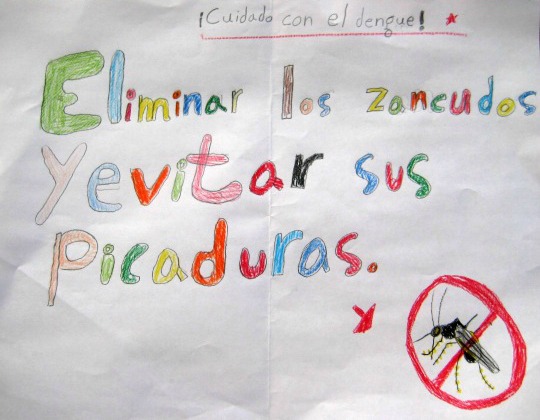 ¡Cuidado con el dengue!
Eliminar los zancudos
y evitar sus
picaduras.